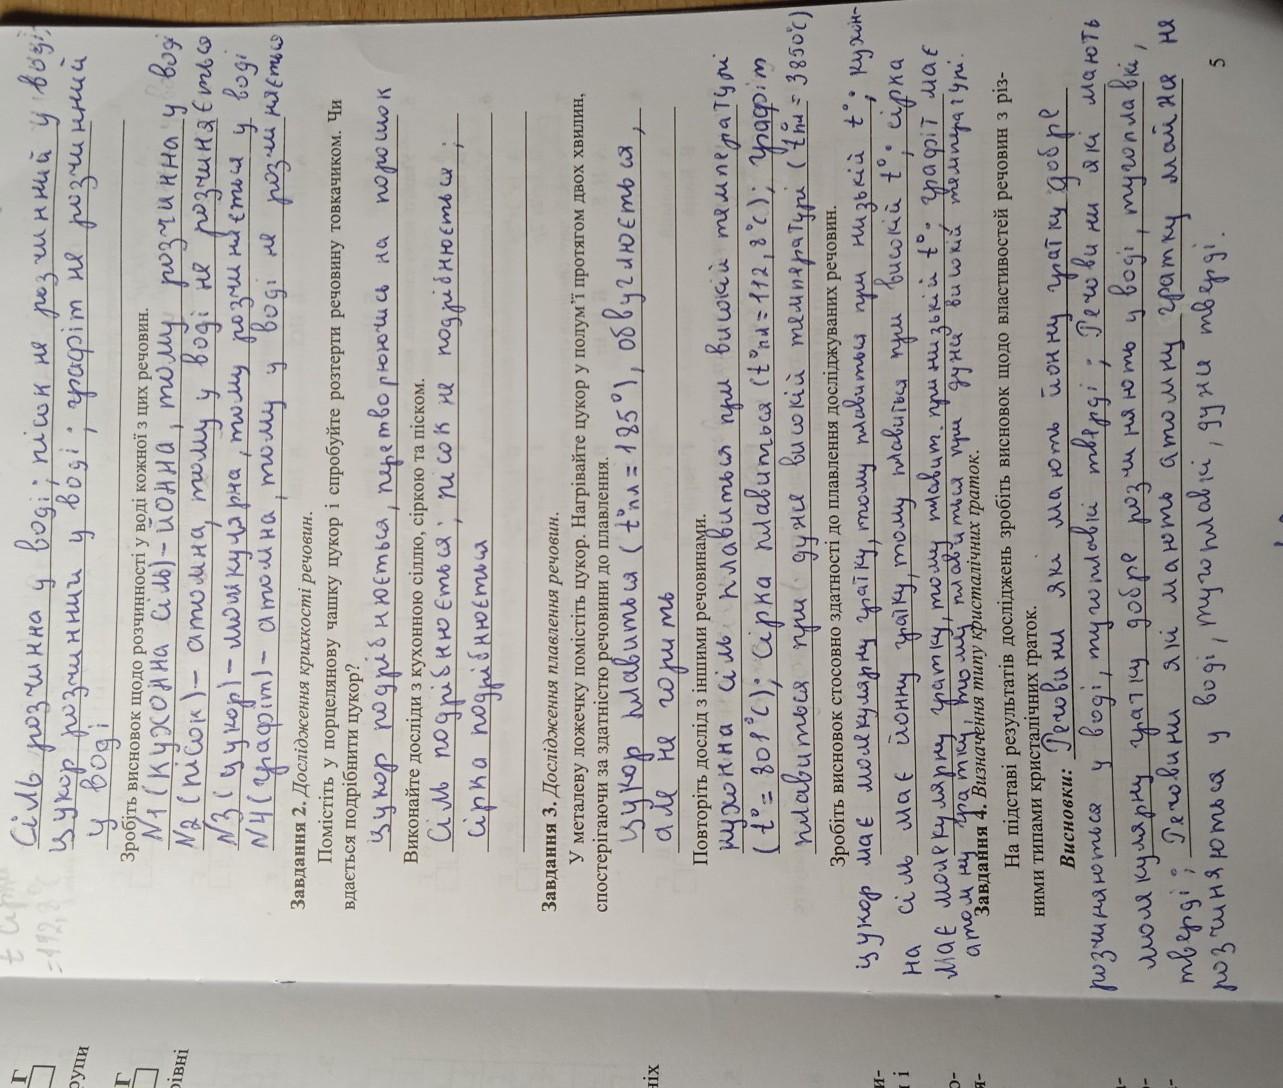 Сіль розчина у воді; пісок не розчинний у воді;
цукор розчинний у воді; графіт не розчинний
у воді
Зробіть висновок щодо розчинності у воді кожної з цих речовин.
N1 (кухонна сіль) - йонна, тому розчинна у воді
N2 (пісок) - атомна, тому у воді не розчиняється
N3 (цукор) - молекулярна, тому розчиняється у воді
N4 (графіт) - атомна, тому у воді не розчиняється
Завдання 2. Дослідження крихкості речовин.
Помістіть у порцелянову чашку цукор і спробуйте розтерти речовину товкачиком. Чи
вдається подрібнити цукор?
цукор подрібнюється, перетворюючись на порошок
Виконайте досліди з кухонною сіллю, сіркою та піском.
Сіль подрібнюється; пісок не подрібнюється;
сірка подрібнюється
Завдання 3. Дослідження плавлення речовин.
У металеву ложечку помістіть цукор. Нагрівайте цукор у полум'ї протягом двох хвилин,
спостерігаючи за здатністю речовини до плавлення.
Цукор плавиться (t°пл = 185°), обвуглюється,
але не горить
Повторіть дослід з іншими речовинами.
кухонна сіль плавиться при високій температурі
(t° = 801°C); сірка плавиться (t°пл = 112,8°C); графіт
плавиться при дуже високій температурі (t°пл = 3850°C)
Зробіть висновок стосовно здатності до плавлення досліджуваних речовин.
цукор має молекулярну гратку, тому плавиться при низькій t°; кухон-
на сіль має йонну гратку, тому плавиться при високій t°; сірка
має молекулярну гратку, тому плавит. при низькій t°. графіт має
атомну гратку, тому плавиться при дуже високій температурі.
Завдання 4. Визначення типу кристалічних ґраток.
На підставі результатів досліджень зробіть висновок щодо властивостей речовин з різ-
ними типами кристалічних ґраток.
Висновки: Речовини які мають йонну гратку добре
розчиняються у воді, тугоплавкі тверді; Речовини які мають
молякулярну гратку добре розчиняють у воді, тугоплавкі,
тверді; Речовини які мають атомну гратку майже не
розчиняються у воді, тугоплавкі, дуже тверді.
5
Г
рупи
Г
рівні
ніх